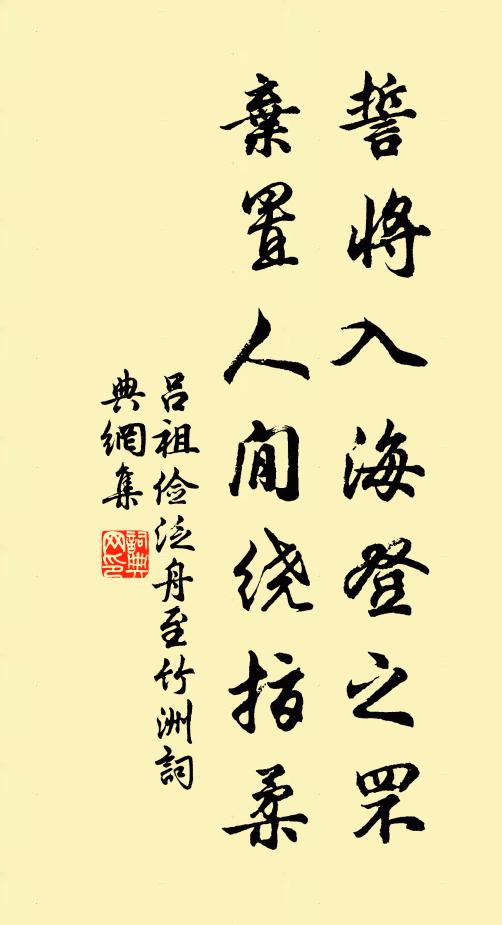 誓將入海登之罘
棄置人间绕指柔
吕祖俭泛舟至竹洲詞
典網集
詞典网印